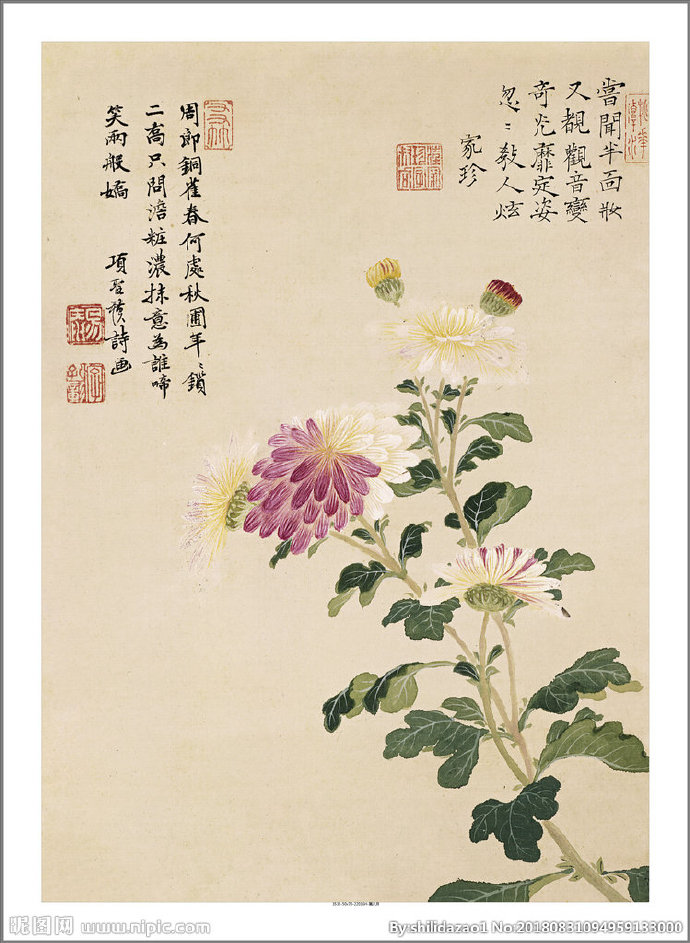 嘗聞半面妝
又覩觀音變
奇光靡定姿
忽〻教人炫
家珍
周郎銅雀春何處秋圃年〻鎖
二喬只問澹粧濃抹意為誰啼
笑兩般嬌
項聖謨詩画
昵图网 www.nipic.com
By:shilidazao1 No:20180831094959133000